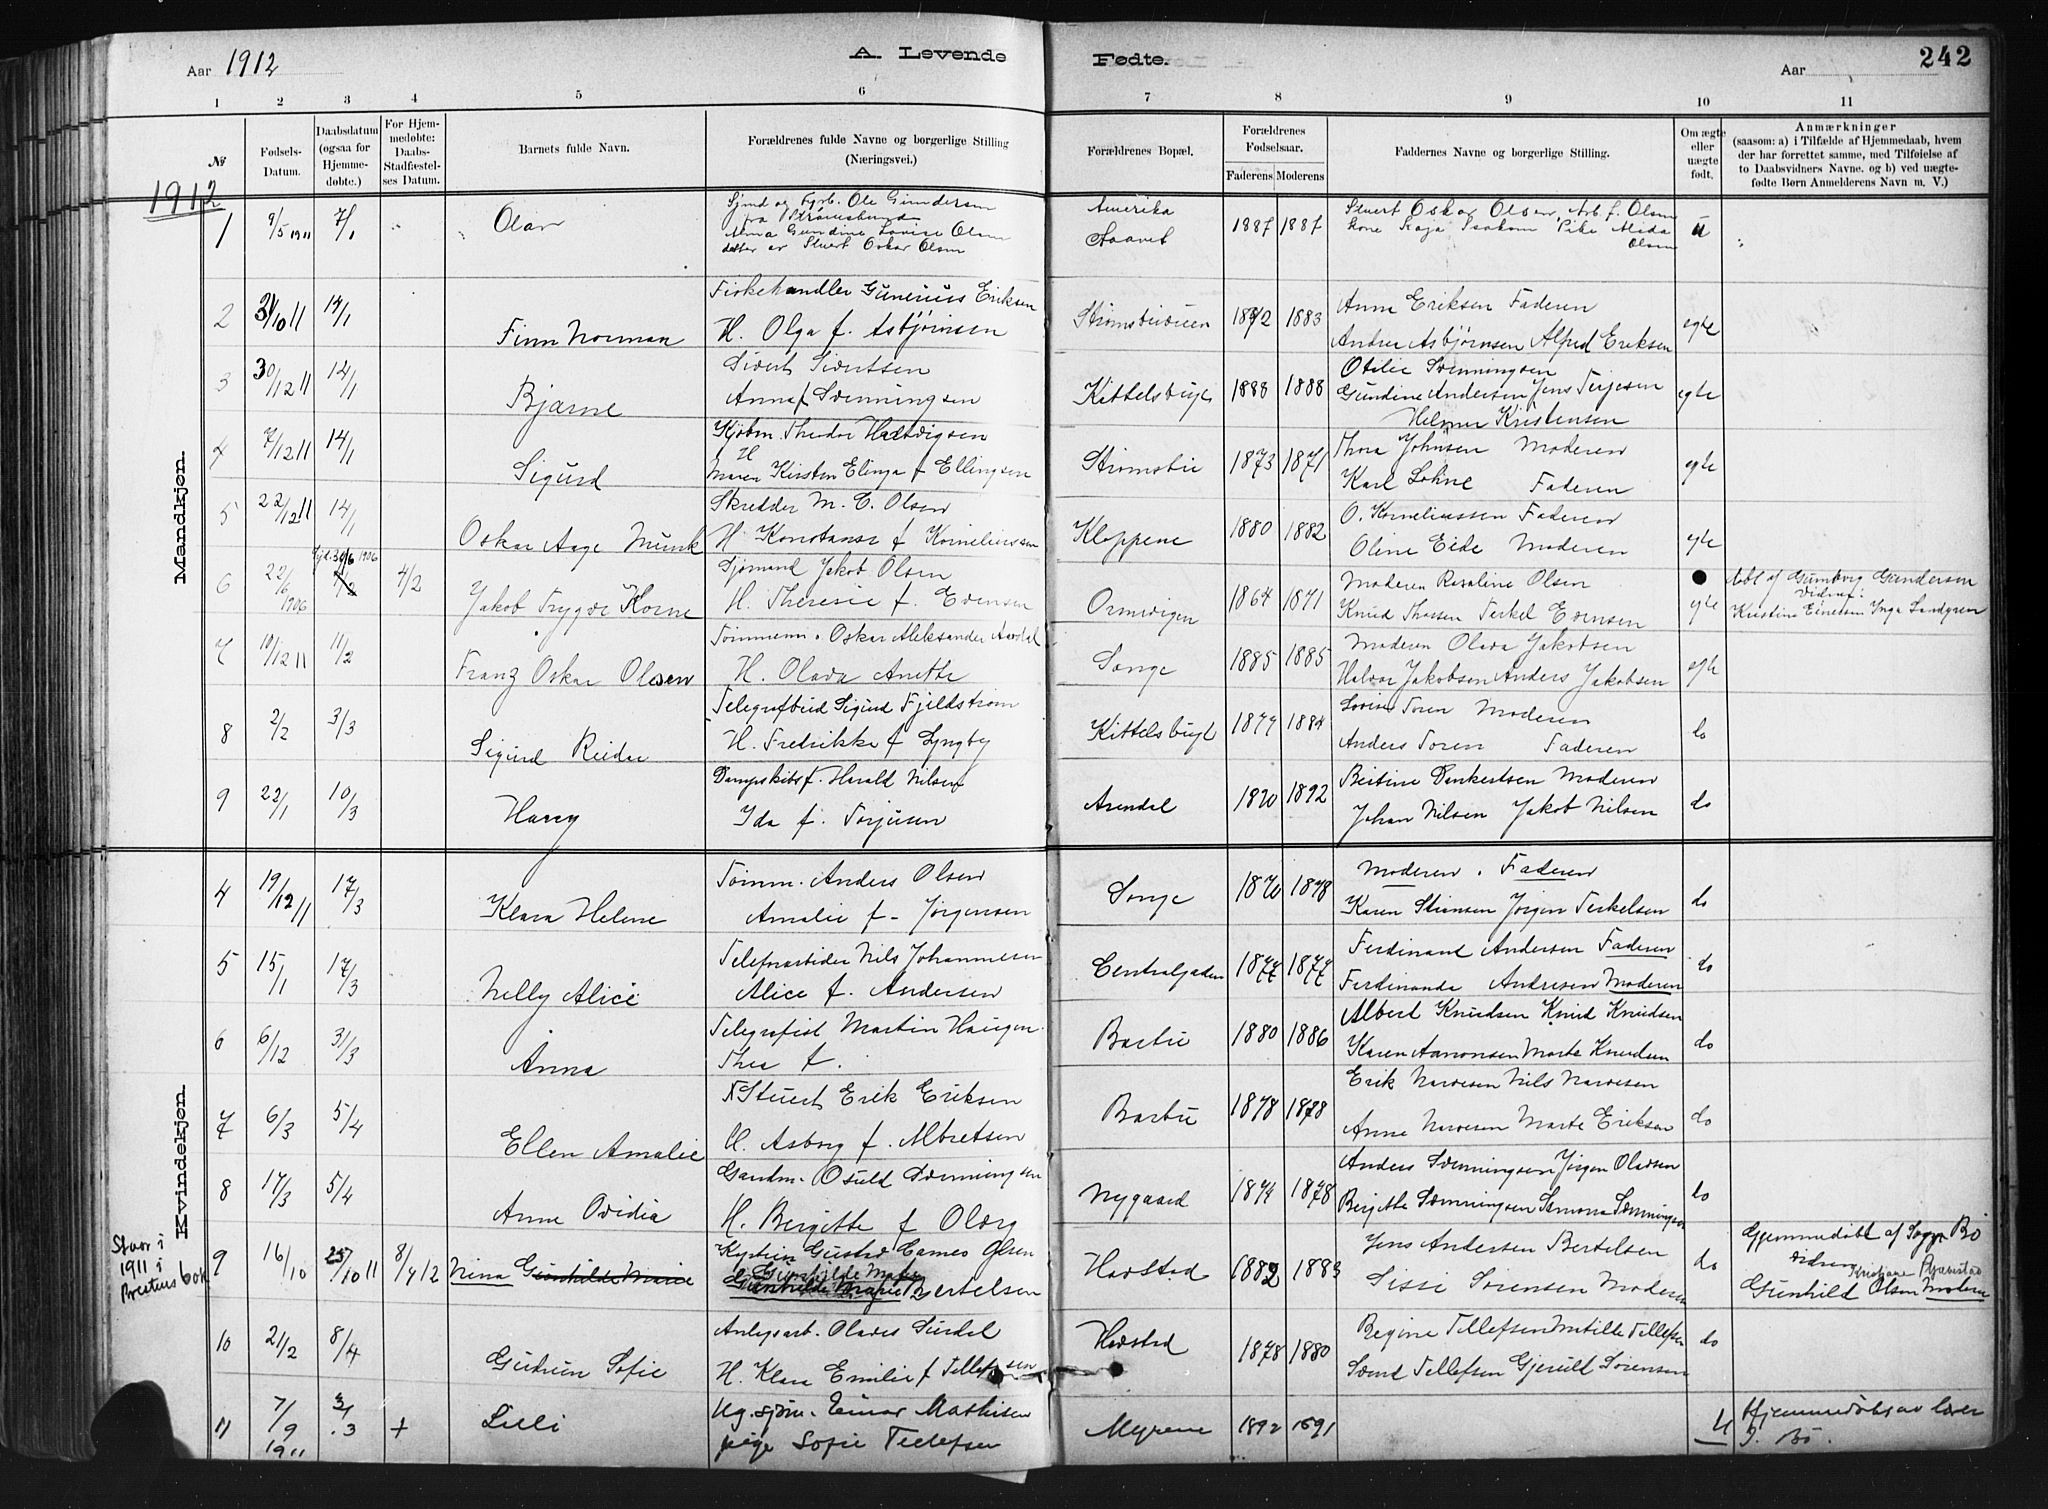 Aar 1912
A. Levende Fødte.
Aar
242
1 2 3 4 5 6 7 8 9 10 11
№
Fødsels-Datum.
Daabsdatum (ogsaa for Hjemme-døbte.)
For Hjem-medøbte: Daabs-Stadfæstel-ses Datum.
Barnets fulde Navn.
Forældrenes fulde Navne og borgerlige Stilling (Næringsvei.)
Forældrenes Bopæl.
Forældrenes Fødselsaar.
Faderens Moderens
Faddernes Navne og borgerlige Stilling.
Om ægte eller uægte født.
Anmærkninger
(saasom: a) i Tilfælde af Hjemmedaab, hvem der har forrettet samme, med Tilføielse af to Daabsvidners Navne. og b) ved uægte-fødte Børn Anmelderens Navn m. V.)
1912
Mandkjøn.
1 9/5 1911 7/1 Olav
Ole Gundersen
fra Strømsbund
Anna Gundine Lovise Olsen
datter av Stuert Oskar Olsen
Amerika
1887 1887
Stuert Oskar Olsen, Arb. f. Olsen
kone Kaja Isaksen Pike Alida
Olsen
u
2 31/10 11 14/1 Finn Norman
Fiskehandler Gunerius Eriksen
H. Olga f. Asbjørnsen
1883
Anne Eriksen Faderen
Andrea Asbjørnsen Alfred Eriksen
egte
3 30/12 11 14/1 Bjarne
Sivert Sivertsen
Anna f Svenningsen
Kittelsbugt 1888 1888
Otilie Svenningsen
Gundine Andersen Jens Terjesen
Helmer Kristensen
egte
4 7/12 11 14/1 Sigurd
Kjøbm. Theodor Hartvigsen
H
Maren Kirsten Elina f Ellingsen
Strømsbu 1873 1871
Thora Johnsen Moderen
Karl Lohne Faderen
egte
5 22/12 11 14/1 Oskar Aage Munk
Skredder M. C. Olsen
H Konstanse f Korneliussen
Kloppene 1880 1882
O. Korneliussen Faderen
Oline Eide Moderen
egte
6 22/6 1906 30/6 1906 4/2 Jakob Trygve Korne
Sjømand Jakob Olsen
H. Theresie f. Evensen
Ormvigen 1864 1871
Moderen Rosaline Olsen
Knud Thossen Terkel Evensen
egte
døbt af Gunborg Gundersen
Vidner:
Kristine Evensen Inga Landgren
7 10/12 11 11/2 Franz Oskar Olsen
Tømmerm. Oskar Aleksander Aavdal
H. Olava Anette
Songe 1885 1885
Moderen Olava Jakobsen
Halvor Jakobsen Anders Jakobsen
egte
8 2/2 3/3 Sigurd Reidar
Telegrafbud Sigurd Fjeldstrøm
H. Fredrikke f Lyngby
Kittelsbugt 1879 1884
Lovise Toren Moderen
Anders Toren Faderen
do
9 22/1 10/3 Harry
Dampskibsf. Harald Nilsen
Ida f. Torjusen
Arendal 1892
Bertine Dankertsen Moderen
Johan Nilsen Jakob Nilsen
do
Kvindekjøn.
4 19/12 11 17/3 Klara Helene
Tømm. Anders Olsen
Amalie f. Jørgensen
Songe 1870 1878
Moderen. Faderen
Karen Stiansen Jørgen Terkelsen
do
5 15/1 17/3 Nelly Alice
Telefonarbeider Nils Johannesen
Alice f. Andersen
Centralgaden 1877 1877
Ferdinand Andersen Faderen
Ferdinanda Andresen Moderen
do
6 6/12 31/3 Anna
Telegrafist Martin Haugen
Thea f.
Barbu 1880 1886
Albert Knudsen Knud Knudsen
Karen Aamonsen Marte Knudsen
do
7 6/3 5/4 Ellen Amalie
Stuert Erik Eriksen
H. Asborg f. Albretsen
Barbu 1878 1878
Erik Narvesen Nils Narvesen
Anne Narvesen Marte Eriksen
do
8 17/3 5/4 Anne Ovidia
Gaardm. Osuld Svenningsen
H. Bergitte f Olsen
Nygaard 1878
Anders Svenningsen Jørgen Olavsen
Bergitte Svenningsen Simona Svenningsen
do
Staar i
1911 i
Præstens bok
9 16/10 25/10 11 8/4 12 Nina Gunhilde Marie
Kaptein Gustav James Olsen
Gunhilde Marie
Gunhilde Marie Bertelsen
Havstad 1882 1883
Jens Andersen Bertelsen
Sissi Sørensen Moderen
do
Hjemmedøbt af Sogpr. Bø
vidner Kristiane Bjørnstad
Gunhild Olsen Moderen
10 21/2 8/4 Gudrun Sofie
Anlegsarb. Olaves Surdal
H. Klara Emilie f Tellefsen
Havstad 1878 1880
Regine Tellefsen Matille Tellefsen
Sævel Tellefsen Gjerull Sørensen
do
11 7/9 1911 31/3 + Lilli
Ug. sjøm. Einar Mathisen
pige Sofie Tellefsen
Myrene 1892 1891
U
Hjemmedøbt av lærer
J. Bø.